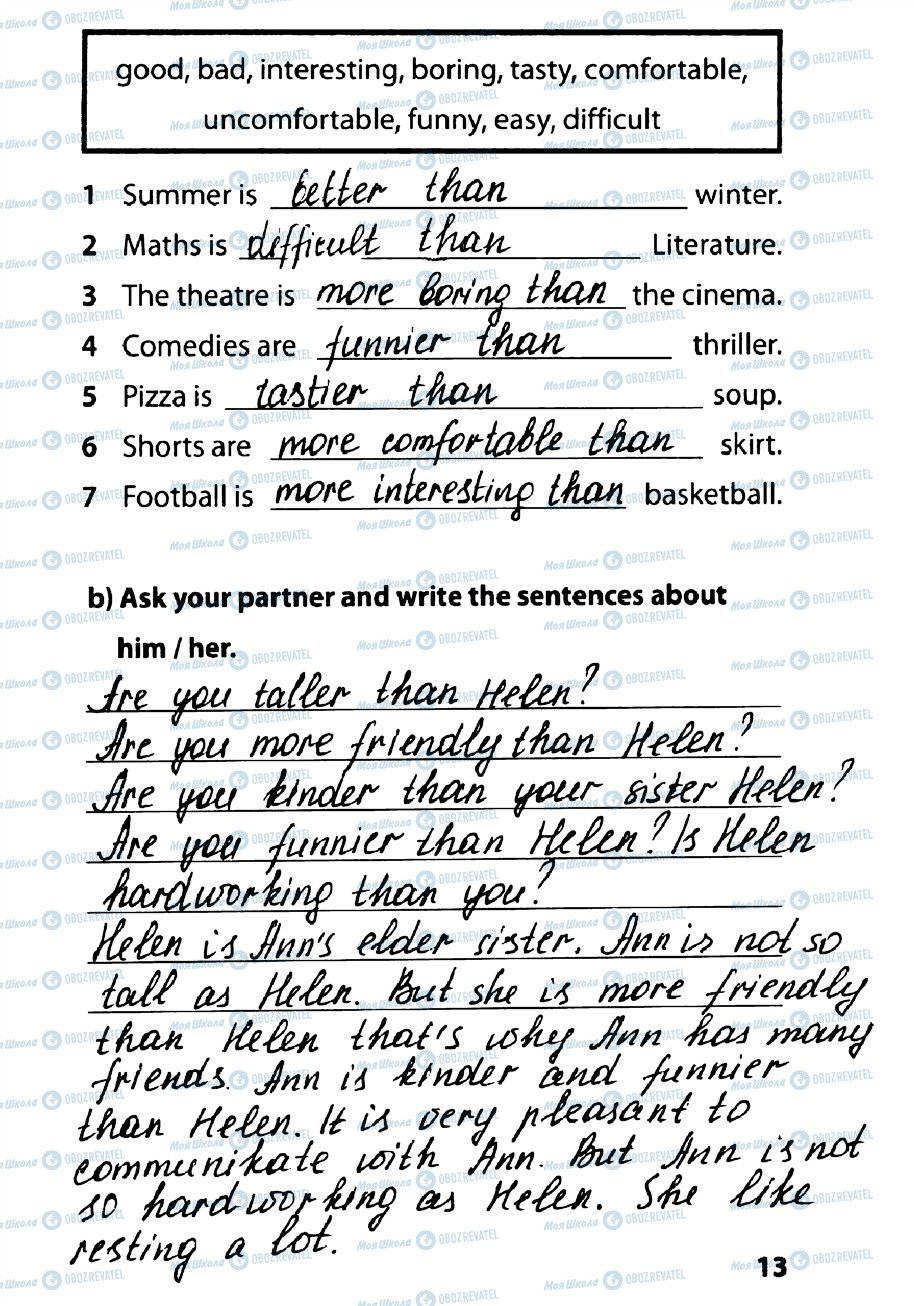 good, bad, interesting, boring, tasty, comfortable,
uncomfortable, funny, easy, difficult
1 Summer is better than winter.
2 Maths is difficult than Literature.
3 The theatre is more boring than the cinema.
4 Comedies are funnier than thriller.
5 Pizza is tastier than soup.
6 Shorts are more comfortable than skirt.
7 Football is more interesting than basketball.
b) Ask your partner and write the sentences about
him / her.
Are you taller than Helen?
Are you more friendly than Helen?
Are you kinder than your sister Helen?
Are you funnier than Helen? Is Helen
hardworking than you?
Helen is Ann's elder sister. Ann is not so
tall as Helen. But she is more friendly
than Helen that's why Ann has many
friends. Ann is kinder and funnier
than Helen. It is very pleasant to
communikate with Ann. But Ann is not
so hardworking as Helen. She like
resting a lot.
13
Моя Школа OBOZREVATEL